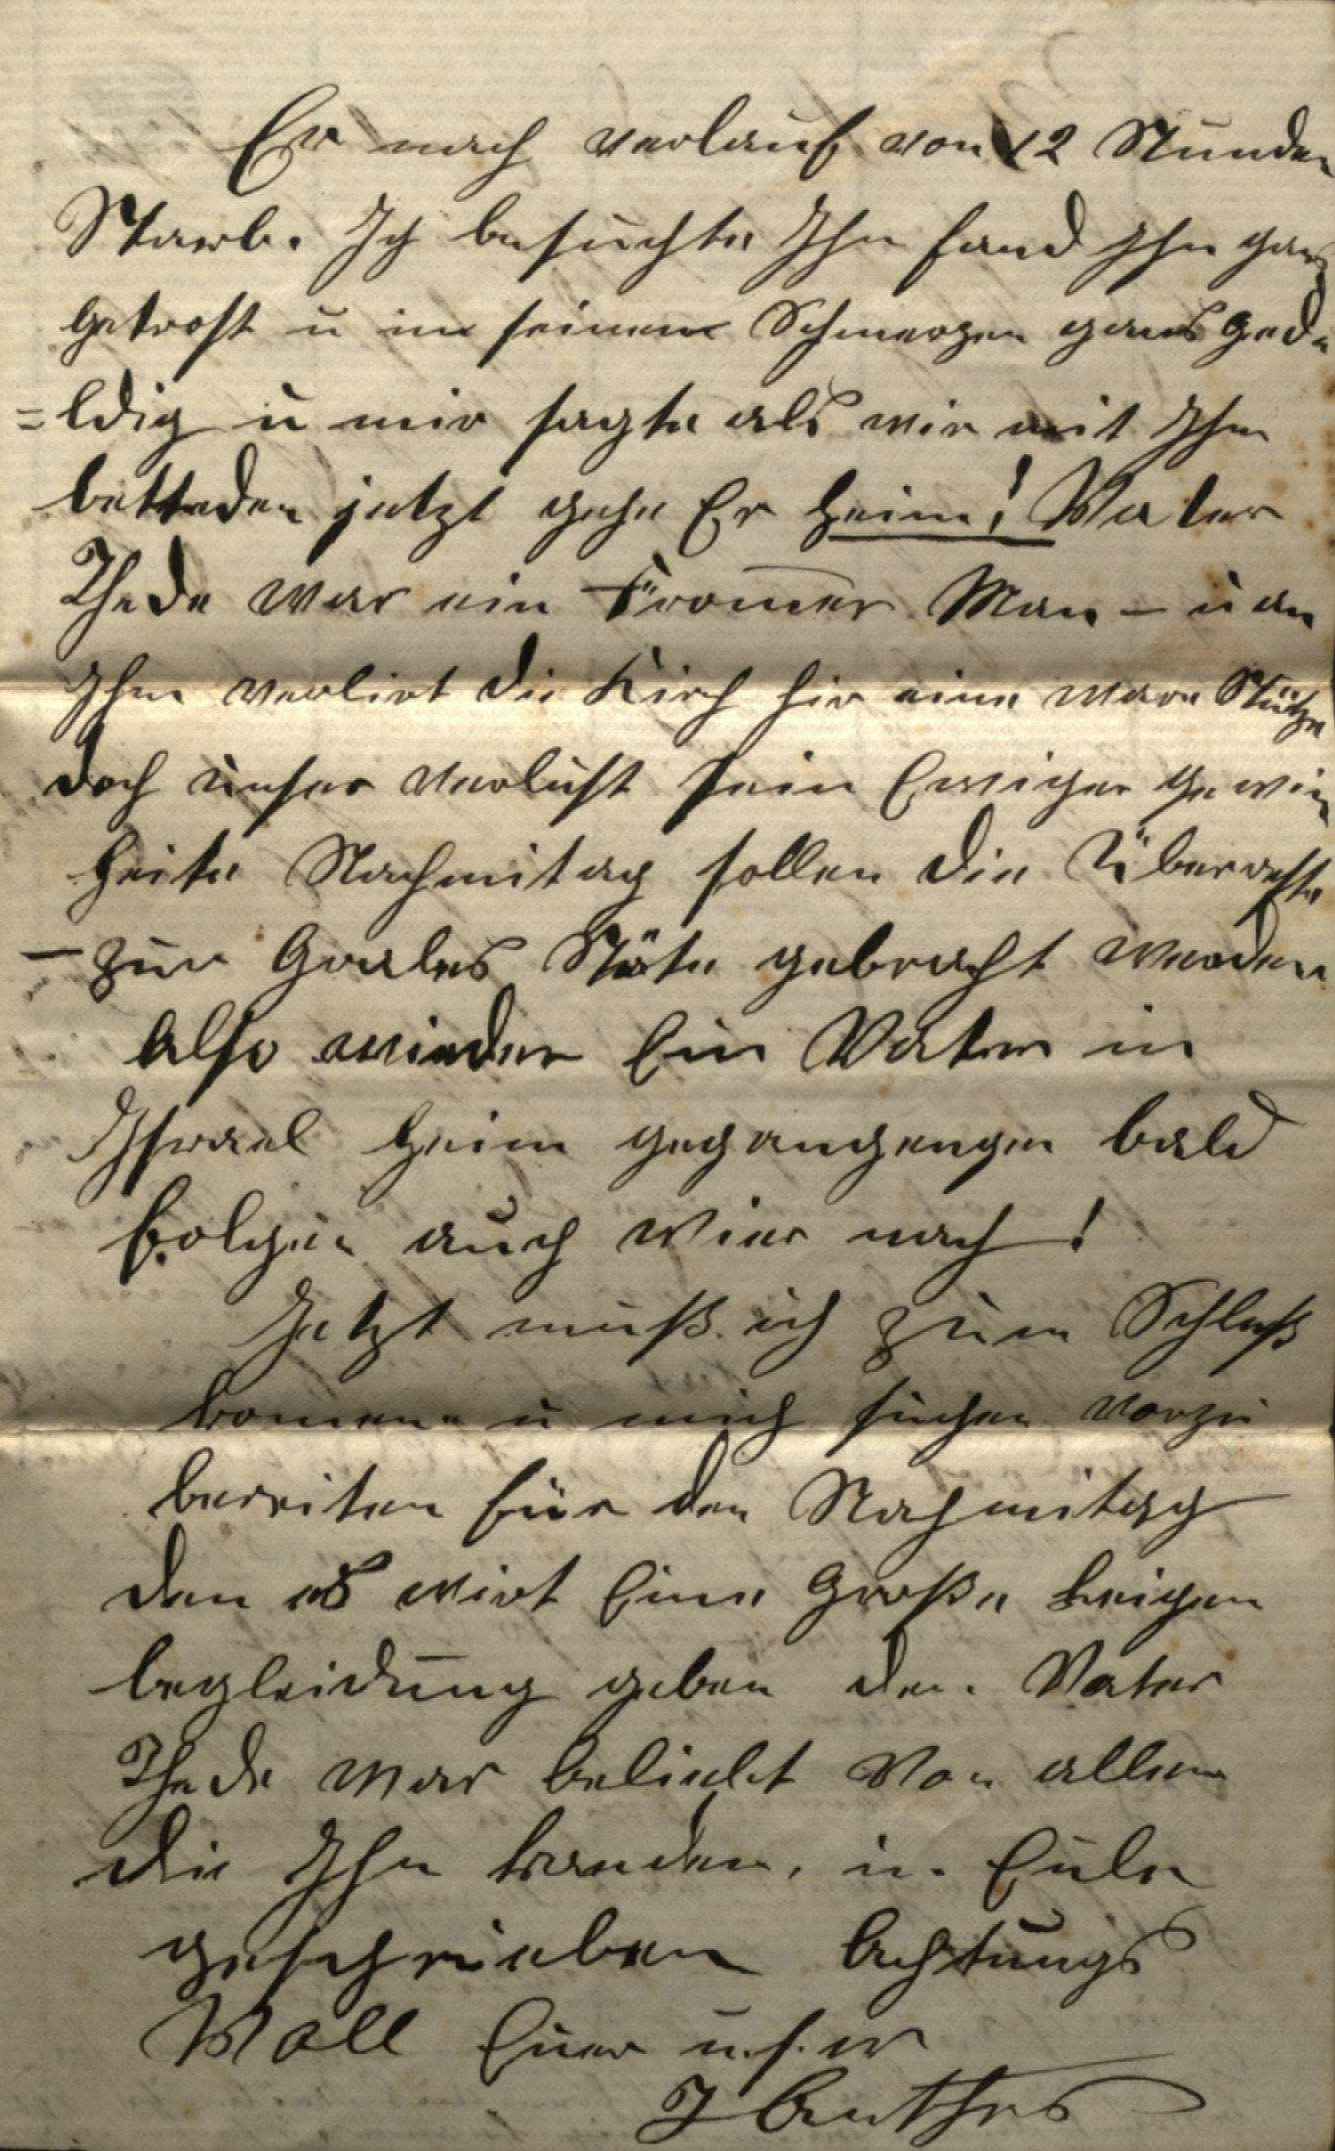 Er nach verlauf von 12 Stunden
Starb. Ich besuchte Ihn fand Ihn ganz
getrost u in seinem Schmerzen ganz gedu
=ldig u mir sagte als wir mit Ihm
betteden jetzt gehe Er heim! Vater
Thede war ein Fromer Man – u an
Ihm verlirt die Kirch hir eine ware Stütze
doch unser verlust sein Ewiger gewin
heite Nachmitag sollen die Überreste
– zur Grabes Stäte gebracht werden
also wieder Ein Vater in
Israel heim gegangengen bald
folgen auch Wier nach!
Jetzt muß ich zum Schluß
komen u mich suchen vorzu
bereiten für den Nachmitag
den es wirt Eine Große Leigen
begleidung geben den Vater
Thede war beliebt von allen
die Ihn kanden, in Eule
geschrieben Achtungs
Voll Euer u.s.w
J Anthes